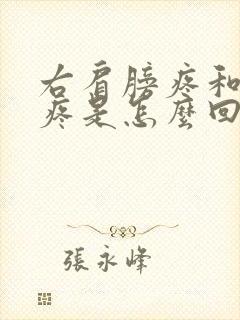 右肩膀疼和
疼是怎麼回
張永峰